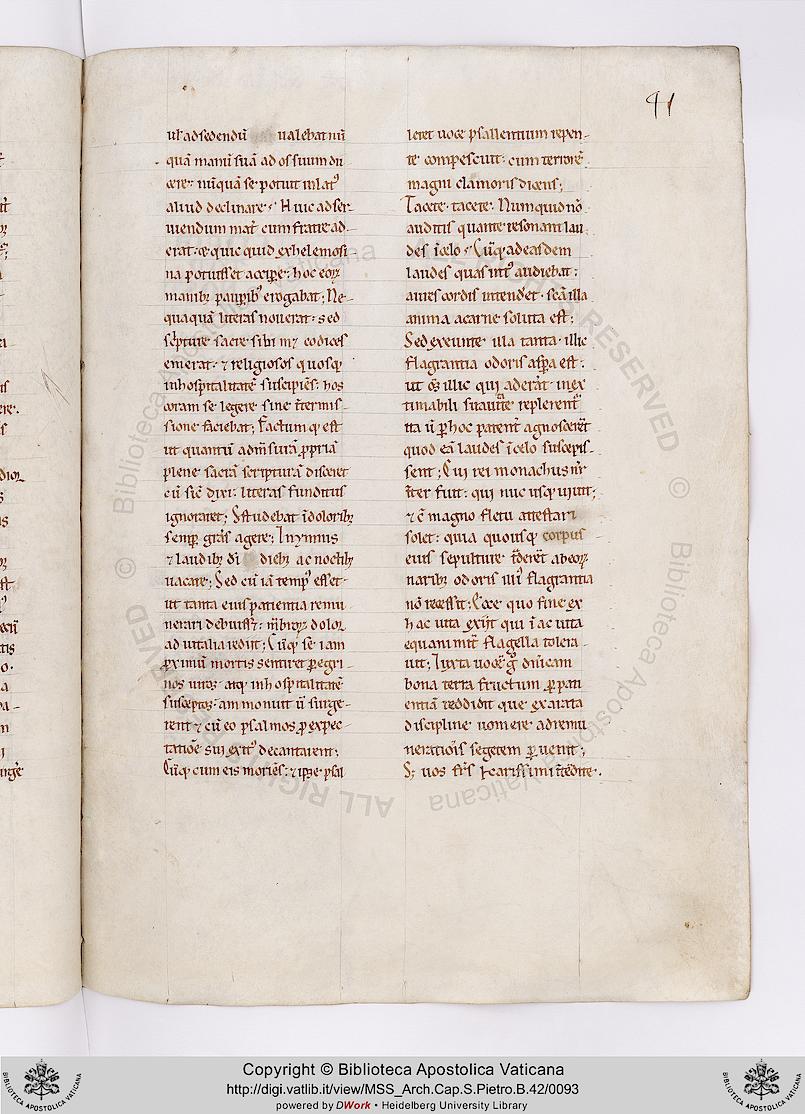 41
ul' ad sedendū ualebat nū
quā manū suā ad os suum du
cere· nūquā se potuit in lat᾽
aliud declinare· Huic ad ser
uiendum mat̄ cum fratre ad
erat· & quic quid ex helemosi
na potuisset accipe· hoc eoꝝ
manibꝫ paupibꝫ erogabat; Ne
quaquā literas nouerat· sed
sc̄pture sacre sibi m& codices
emerat· & religiosos quosqꝫ
in hospitalitatē suscipiēs· hos
coram se legere sine īt̄ermis
sione faciebat; Factum qꝫ est
ut quantū ad m̄suram ꝓpriā
plene sacrā scripturā disceret
cū sic̄ dixi· literas funditus
ignoraret; Studebat ī doloribꝫ
semp̱ grās agere; In ymnis
& laudibꝫ dī diebꝫ ac noctibꝫ
uacare; Sed cū iā temp᾽ esset·
ut tanta eius patientia remu
nerari debuiss&· mēbroꝝ dolor
ad uitalia rediit; Cūqꝫ se iam
ꝓximū mortis sentiret peregri
nos uiros· atqꝫ in hospitalitatē
susceptos· ammonuit ū surge
rent & cū eo psalmos ꝓ expec
tatiōe sui exit᾽ decantarent;
Cūqꝫ cum eis moriēs· & ipse psal
leret uoce psallentium repen
te compescuit· cum terrorē
magni clamoris dicens;
Tacete· tacete· Nunquid nō
auditis quante resonant lau
des ī celo· Cūqꝫ ad easdem
laudes quas int᾽ audiebat·
aures cordis intenderet· scā illa
anima a carne soluta est;
Sed exeunte illa tanta illic
flagrantia odoris aspsa est·
ut oms̄ illic qui aderāt inex
timabili suauitate replerentᷣ
ita ū ꝑ hoc patenter agnoscerēt
quod eā laudes ī celo suscepis
sent; Cui rei monachus nr̄
int̄er fuit· qui nūc usqꝫ uiuit;
& cū magno fletu attestari
solet· quia quousqꝫ corpus
eius sepulture tderēt ab eoꝝ
naribꝫ odoris illi᾽ flagrantia
nō recessit; Ecce quo fine ex
hac uita exiit qui ī ac uita
equanimit̄ flagella tolera
uit; Iuxta uocē ḡ dn̄icam
bona terra fructum ꝑ pati
entiā reddidit que exarata
discipline uomere ad remu
nerationis segetem ꝑuenit;
Sꝫ uos frs̄ karissimi īt̄endite·
© Biblioteca Apostolica Vaticana
ALL RIGHTS RESERVED
Copyright © Biblioteca Apostolica Vaticana
http://digi.vatlib.it/view/MSS_Arch.Cap.S.Pietro.B.42/0093
powered by DWork • Heidelberg University Library
BIBLIOTECA APOSTOLICA VATICANA
BIBLIOTECA APOSTOLICA VATICANA